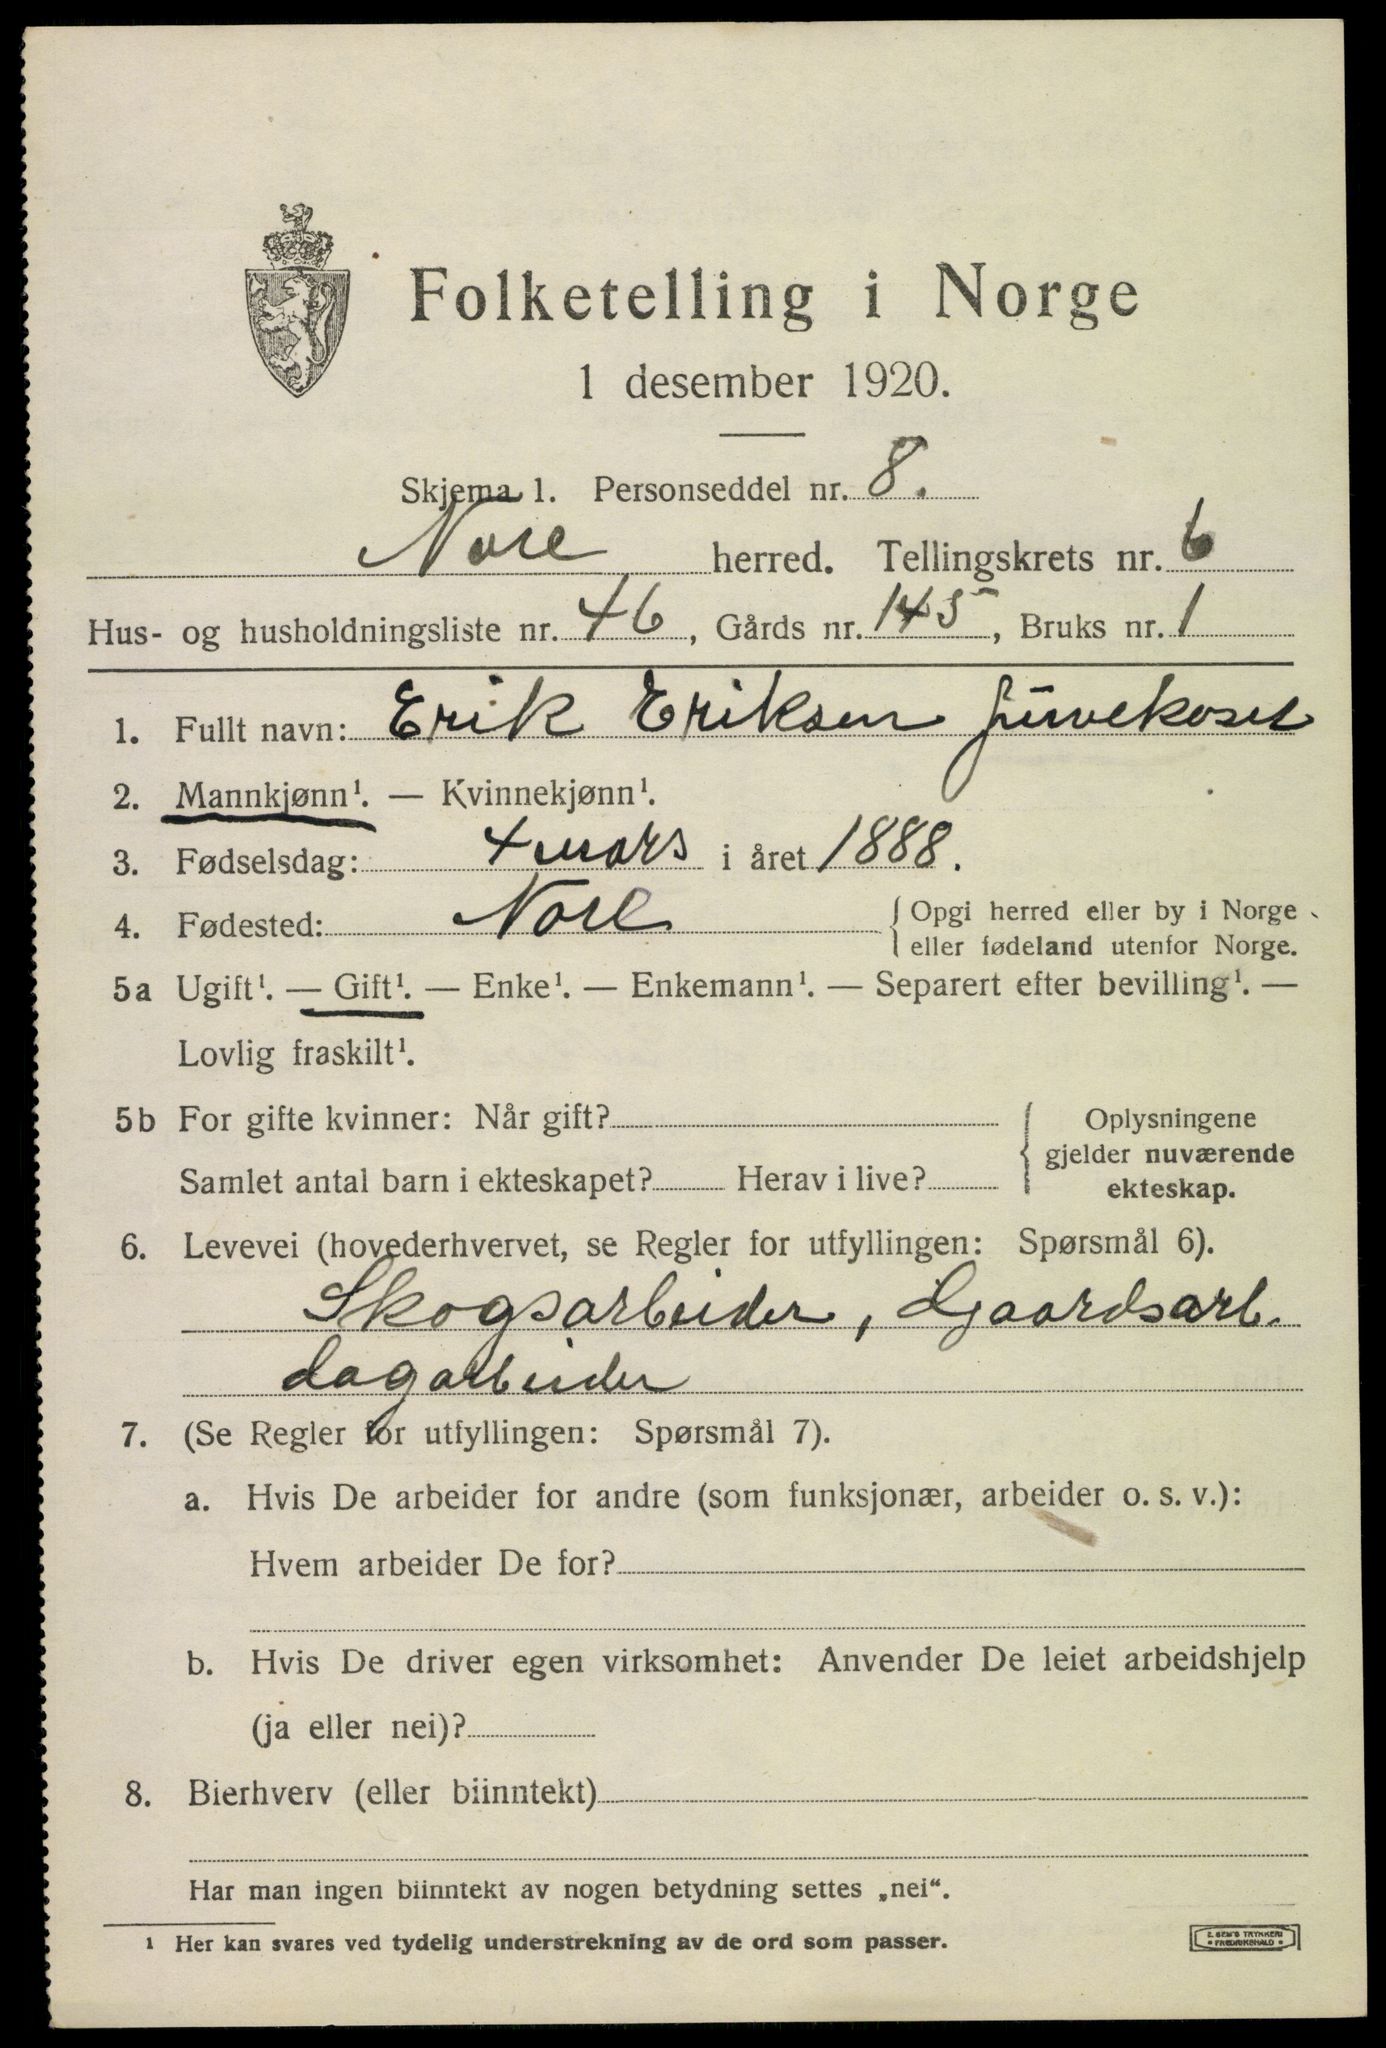 Folketelling i Norge
1 desember 1920.
Skjema 1. Personseddel nr. 8.
Nore herred. Tellingskrets nr. 6
Hus- og husholdningsliste nr. 46, Gårds nr. 145, Bruks nr. 1
1. Fullt navn: Erik Eriksen
2. Mannkjønn¹. — Kvinnekjønn¹.
3. Fødselsdag: 4 mars i året 1888.
4. Fødested: Nore { Opgi herred eller by i Norge
eller fødeland utenfor Norge.
5a Ugift¹. — Gift¹. — Enke¹. — Enkemann¹. — Separert efter bevilling¹. —
Lovlig fraskilt¹.
5b For gifte kvinner: Når gift? { Oplysningene
gjelder nuværende
Samlet antal barn i ekteskapet? Herav i live? ekteskap.
6. Levevei (hovederhvervet, se Regler for utfyllingen: Spørsmål 6).
Skogsarbeider, Gaardsarb.
dagarbeider
7. (Se Regler for utfyllingen: Spørsmål 7).
a. Hvis De arbeider for andre (som funksjonær, arbeider o. s. v.):
Hvem arbeider De for?
b. Hvis De driver egen virksomhet: Anvender De leiet arbeidshjelp
(ja eller nei)?
8. Bierhverv (eller biinntekt)
Har man ingen biinntekt av nogen betydning settes „nei“.
¹ Her kan svares ved tydelig understrekning av de ord som passer.
E. SEM'S TRYKKERI
• FREDRIKSHALD •